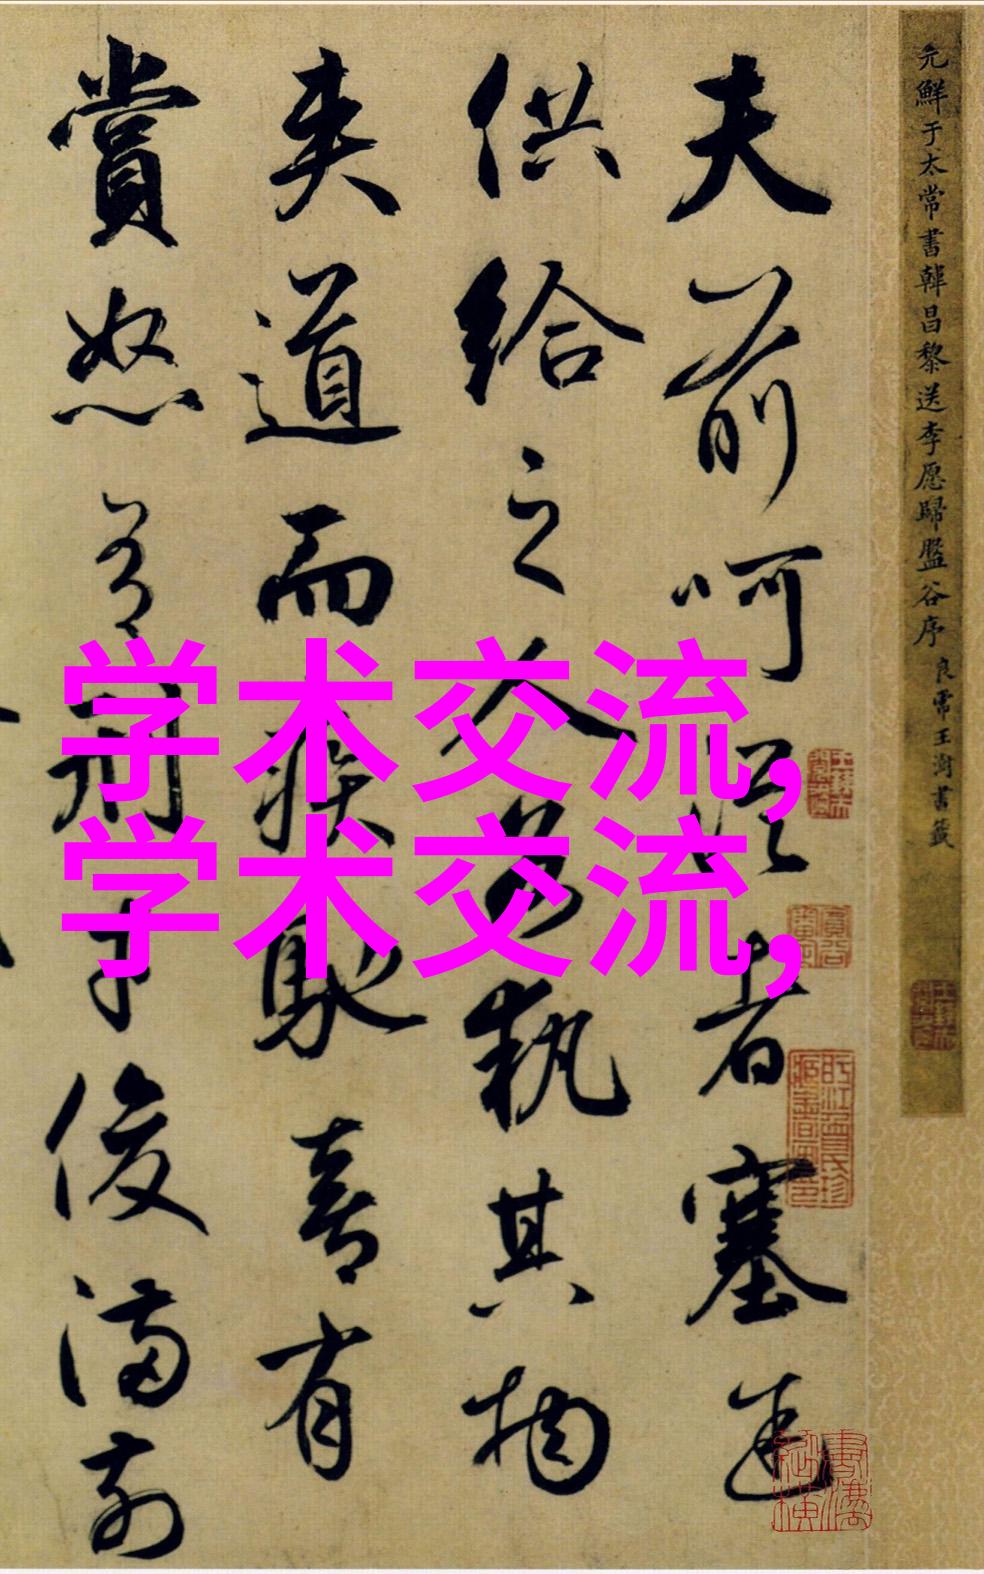 元鮮于太常書韓昌黎送李愿歸盤谷序
良常王澍書籤
夫前呵從者塞途
供給之人各執其物
夾道而疾馳喜有
賞怒有刑才俊滿前
学术交流,
学术交流,